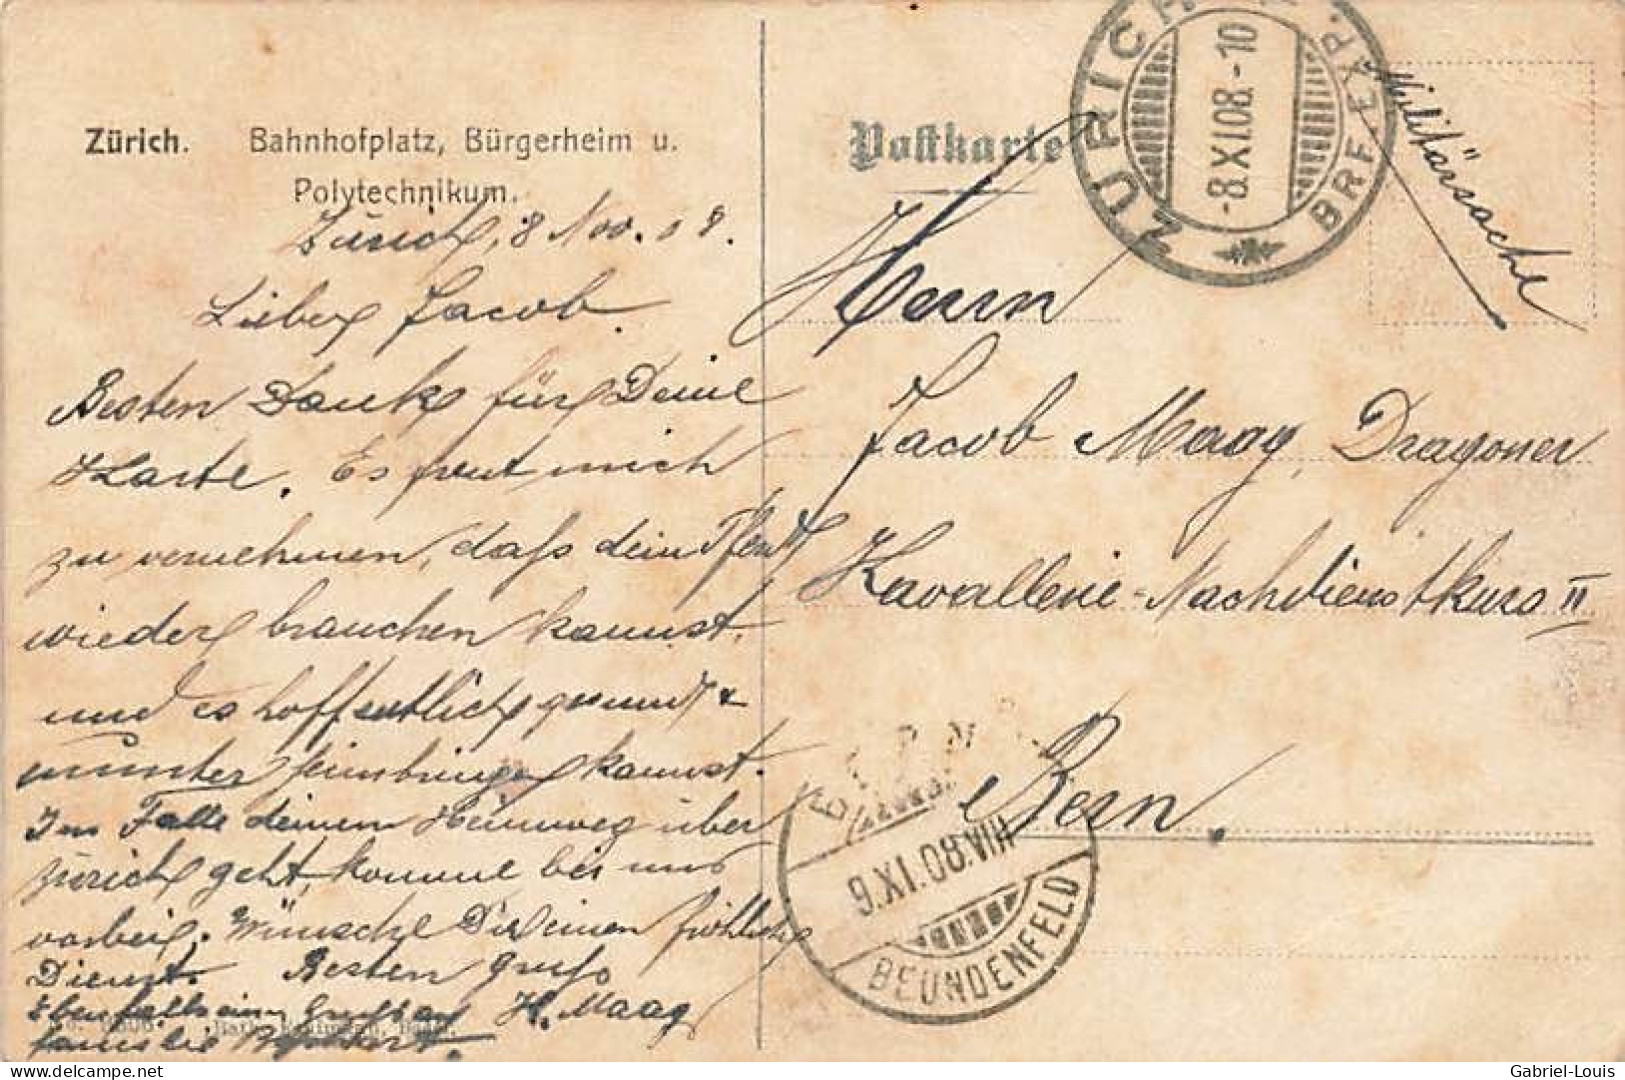 Zürich. Bahnhofplatz, Bürgerheim u.
Polytechnikum.
Zürich, 8 Nov. 08.
Lieber Jacob.
Besten Dank für Deine
Karte. Es freut mich
zu vernehmen, dass dein Pferd
wieder brauchen kannst.
und es hoffentlich gesund &
munter heimbringen kannst.
Im Falle deinem Heimweg über
Zürich geht, komme bei uns
vorbei. Wünsche Dir einen fröhlichen
Dienst. Besten Gruss
H. Maag
Ebenfalls ein Gruss an
Familie
Postkarte
ZÜRICH
BRF. EXP.
-8.XI.08.-10
Militärsache
Herrn
Jacob Maag, Dragoner
Kavallerie-Nachdienstkurs II
Bern.
BERN
9.XI.08.VIII
BEUNDENFELD
Gabriel-Louis
delcampe.net